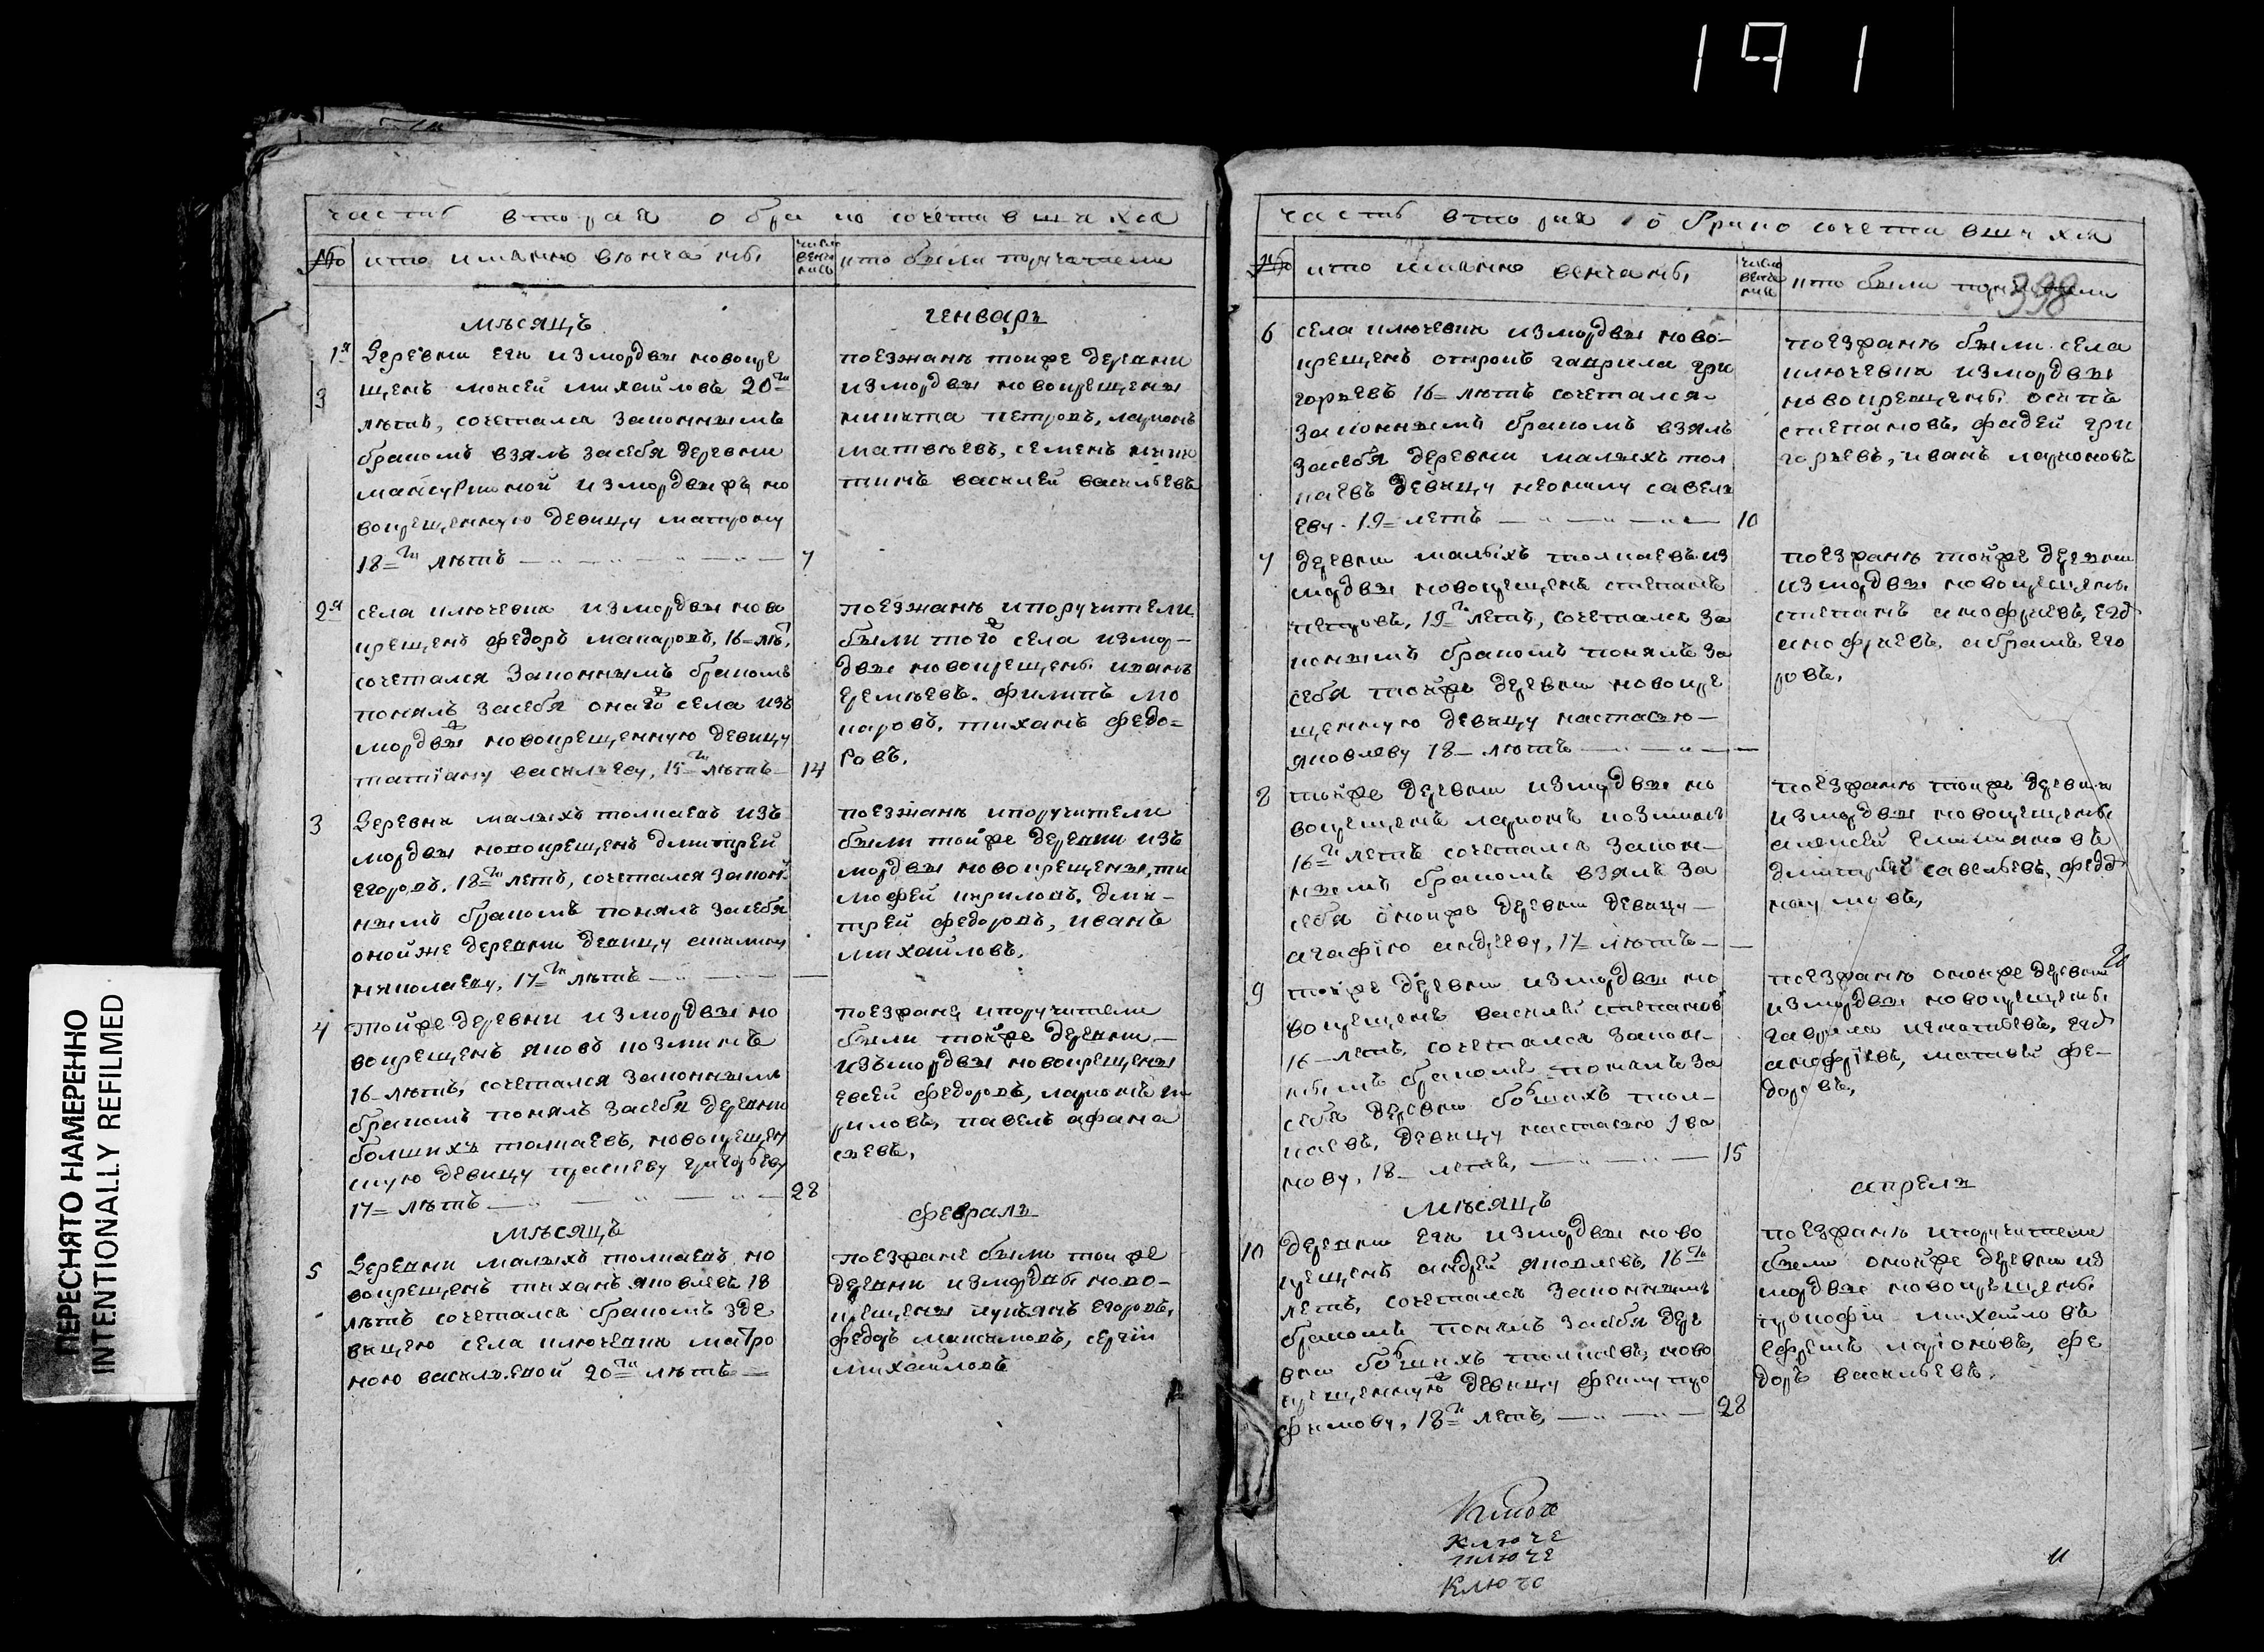 191
часть вторая о брако сочетавшихся
№ кто имянно венчаны число венча нись кто были поручители
месяцъ генварь
1я деревни еги измордвы новокре
3 щенъ моисей михайловъ 20ти
летъ, сочетался законнымъ
бракомъ взялъ засебя деревни
мансуркиной измордвы же но
вокрещенную девицу матрону
18ти летъ 7
поезжанъ тойже деревни
измордвы новокрещены
никита петровъ, ларионъ
матвеевъ, семенъ ники
тинъ василей васильевъ
2я села ключевки измордвы ново
крещенъ федоръ макаровъ, 16 летъ,
сочетался законнымъ бракомъ
понялъ засебя онаго села изъ
мордвы новокрещенную девицу
татiану василеву, 15ти летъ 14
поезжанъ ипоручители
были того села измор-
двы новокрещены иванъ
еремеевъ, филипъ мо
каровъ, тиханъ федо-
ровъ.
3 деревни малыхъ толкаевъ изъ
мордвы новокрещенъ дмитрей
егоровъ, 18ти летъ, сочетался закон
нымъ бракомъ понялъ засебя
онойже деревни девицу
николаеву, 17ти летъ
поезжанъ ипоручители
были тойже деревни изъ
мордвы новокрещены, ти
мофей кириловъ, дми-
трей федоровъ, иванъ
михайловъ.
4 тойже деревни измордвы но
вокрещенъ яковъ козминъ
16 летъ, сочетался законнымъ
бракомъ понялъ засебя деревни
болшихъ толкаевъ, новокрещен
ную девицу прасковью григорьеву
17 летъ 28
поезжане ипоручители
были тойже деревни
изъмордвы новокрещены
евсей федоровъ, ларионъ ки
риловъ, павелъ афона
сьевъ.
месяцъ февраль
5 деревни малыхъ толкаевъ но
вокрещенъ тиханъ яковлевъ 18
летъ сочетался бракомъ зде
вицею села ключевки матро
ною васильевой 20ти летъ
поезжане были тойже
деревни измордвы ново-
крещены лукъянъ егоровъ,
федоръ максимовъ, сергiй
михайловъ
часть вторая о брако сочетавшихся
№ кто имянно венчаны число венча нись кто были поручители
398
6 села ключевки измордвы ново-
крещенъ отрокъ гаврила гри
горьевъ 16 летъ сочетался
законнымъ бракомъ взялъ
засебя деревни малыхъ тол
каевъ девицу неонилу савель
еву 19 летъ 10
поезжанъ были села
ключевки измордвы
новокрещены осипъ
степановъ, фадей гри
горьевъ, иванъ ларионовъ
7 деревни малыхъ толкаевъ из
мордвы новокрещенъ степанъ
петровъ, 19ти летъ, сочетался за
коннымъ бракомъ понялъ за
себя тойже деревни новокре
щенную девицу настасью
яковлеву 18 летъ
поезжанъ тойже деревни
измордвы новокрещены
степанъ анофриевъ, егоръ
анофриевъ, абрамъ его
ровъ,
8 тойже деревни измордвы но
вокрещенъ ларионъ козминъ
16ти летъ сочетался закон-
нымъ бракомъ взялъ за
себя онойже деревни девицу
агафiю андрееву, 17 летъ
поезжанъ тойже деревни
измордвы новокрещены
алексей емельяновъ
дмитрей савельевъ, федоръ
наумовъ,
9 тойже деревни измордвы но
вокрещенъ василей степановъ
16 летъ, сочетался закон-
нымъ бракомъ понялъ за
себя деревни болшихъ тол-
каевъ, девицу настасью ива
нову, 18 летъ, 15
поезжанъ онойже деревни
измордвы новокрещены
гаврила игнатьевъ, егоръ
анофрiевъ, матвей фе-
доровъ,
месяцъ апрель
10 деревни еги измордвы ново
крещенъ андрей яковлевъ, 16ти
летъ, сочетался законнымъ
бракомъ понялъ засебя дере
вни болшихъ толкаевъ, ново
крещенную девицу феклу тро
фимову, 18ти летъ, 28
поезжанъ ипоручители
были онойже деревни из
мордвы новокрещены
прокофiй михайловъ
ефремъ ларiоновъ, фе
доръ васильевъ.
Ключе
ключе
Ключе
ПЕРЕСНЯТО НАМЕРЕННО
INTENTIONALLY REFILMED